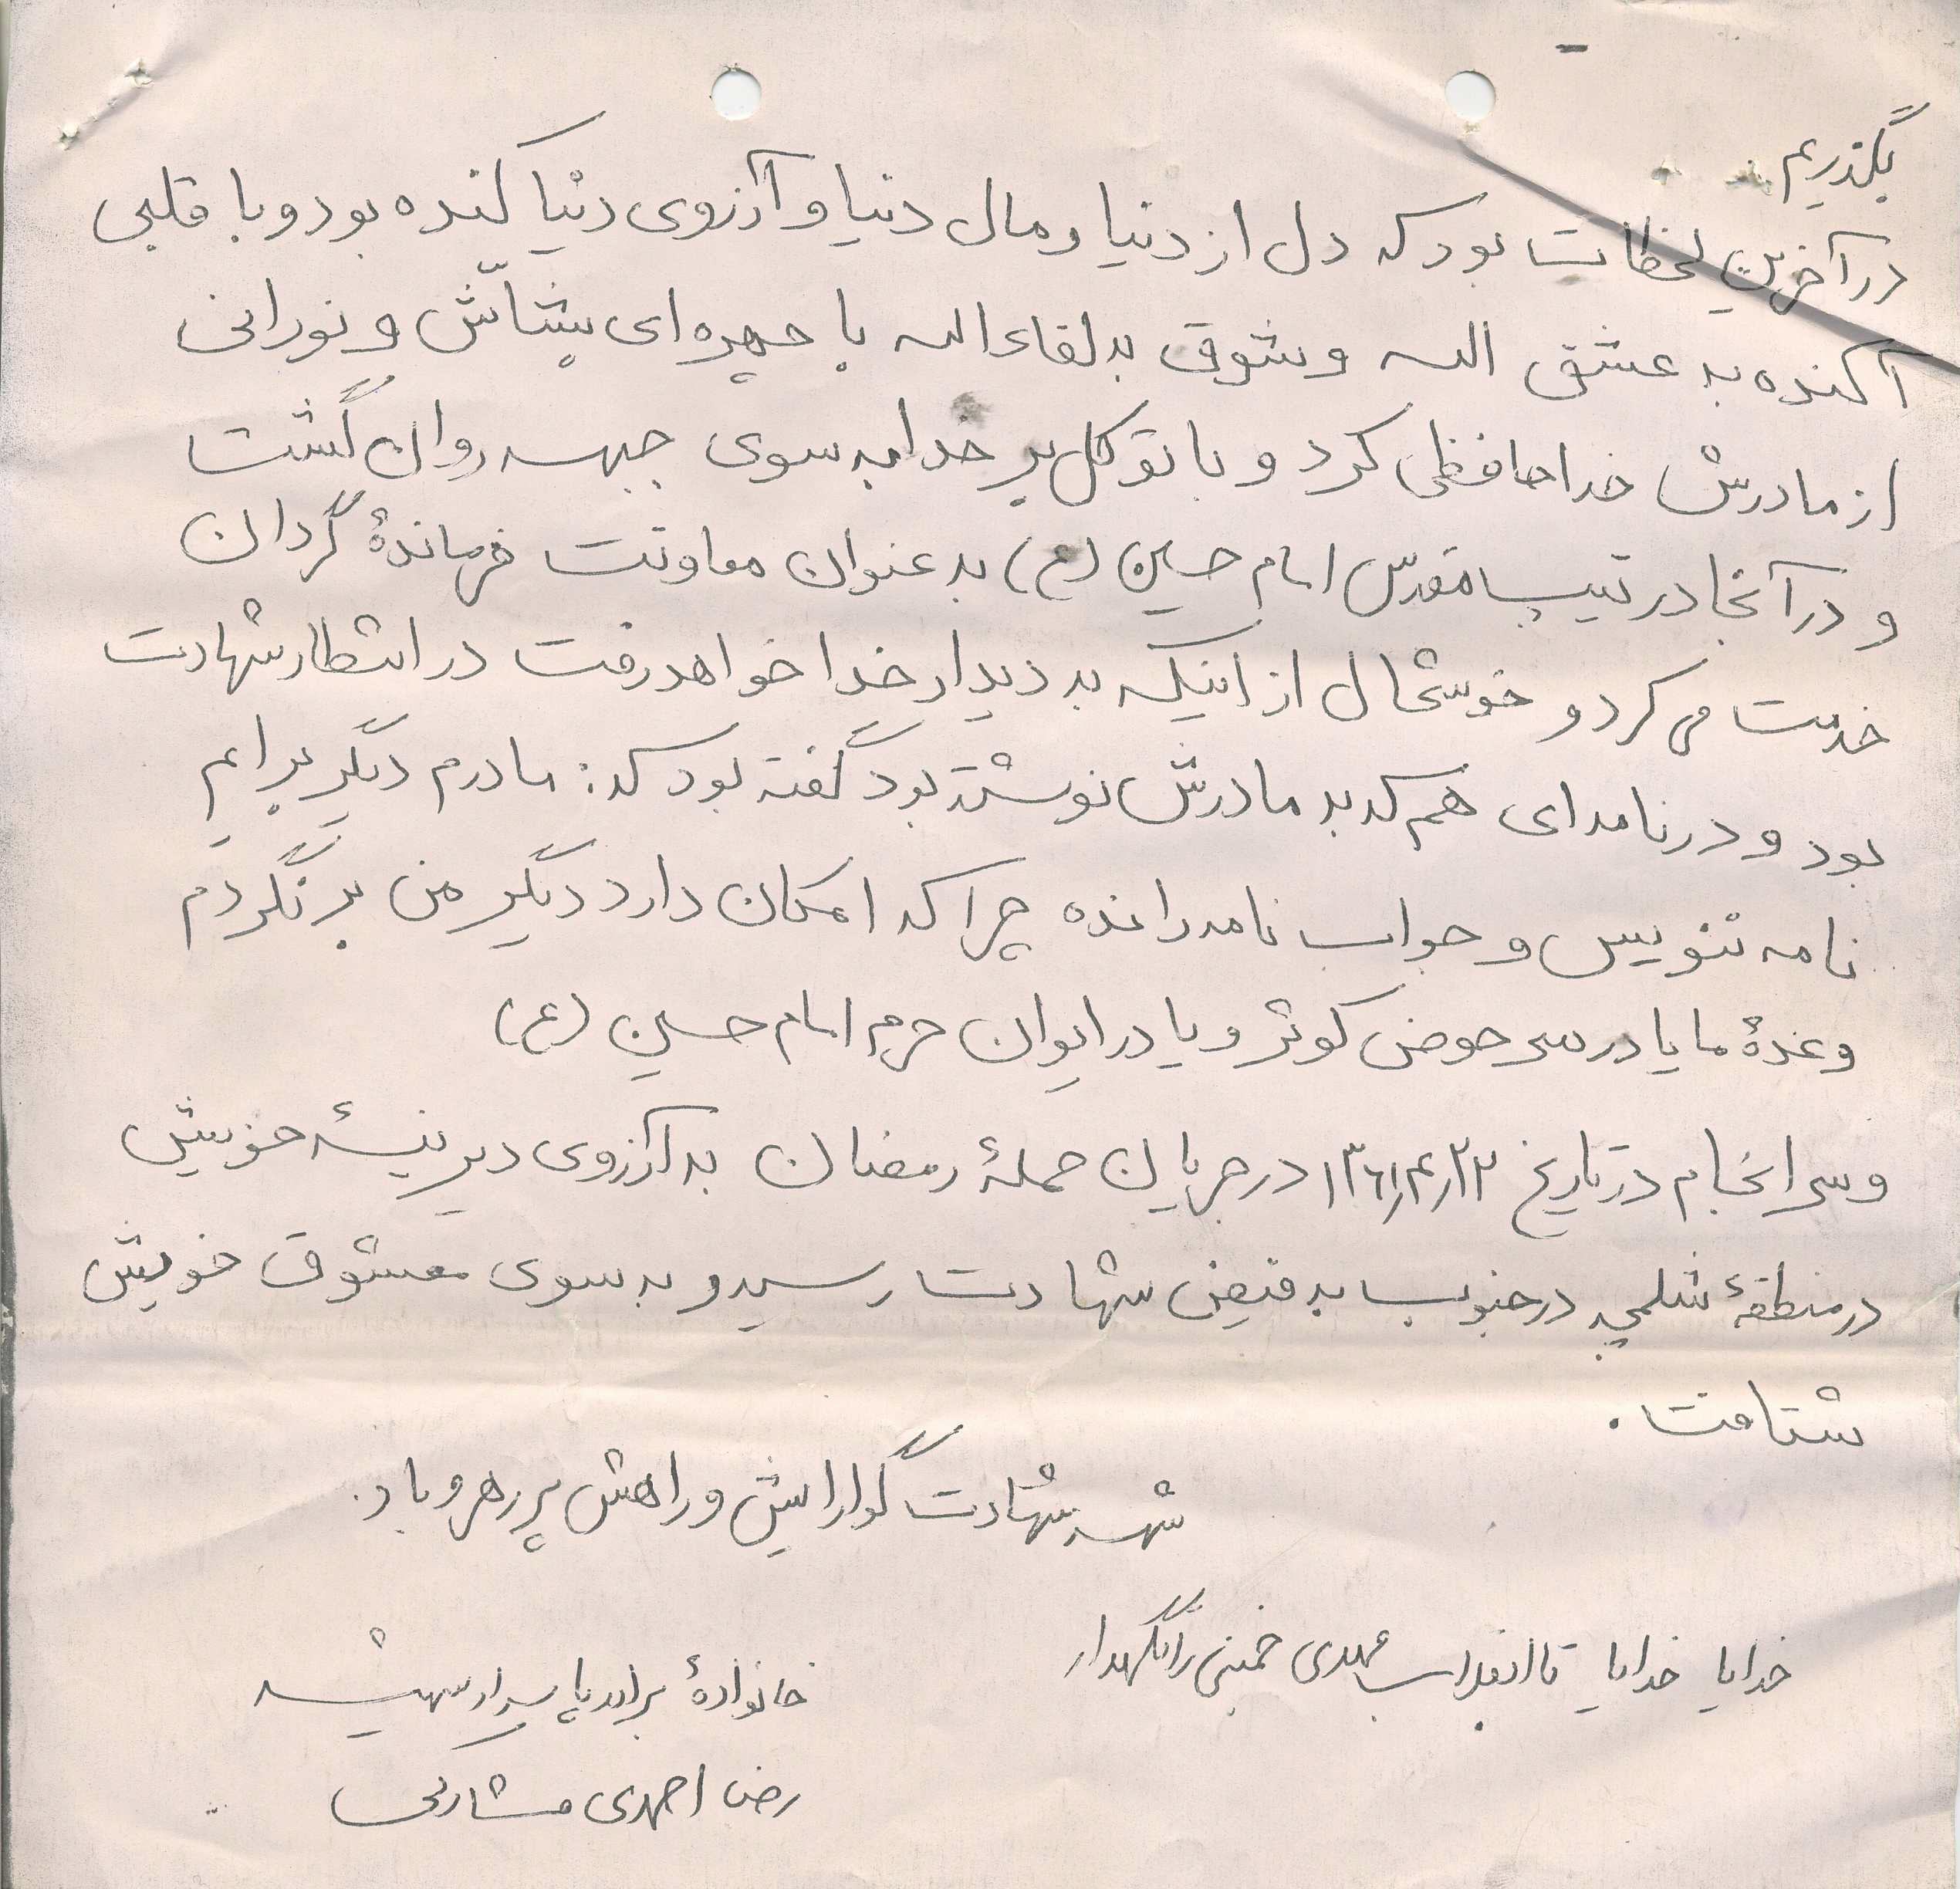 بگذریم
در آخرین لحظات بود که دل از دنیا و مال دنیا و آرزوی دنیا کنده بود و با قلبی
آکنده به عشق الله و شوق به لقاءالله با چهره‌ای بشّاش و نورانی
از مادرش خداحافظی کرد و با توکل بر خدا به سوی جبهه روان گشت
و در آنجا در تیپ مقدس امام حسین (ع) به عنوان معاونت فرماندهٔ گردان
خدمت می کرد و خوشحال از اینکه به دیدار خدا خواهد رفت در انتظار شهادت
بود و در نامه ای هم که به مادرش نوشته بود گفته بود که: مادرم دیگر برایم
نامه ننویس و جواب نامه را نده چرا که امکان دارد دیگر من برنگردم
وعدهٔ ما یا در سر حوض کوثر و یا در ایوان حرم امام حسین (ع)
و سرانجام در تاریخ ۱۳۶۱٫۴٫۲۳ در جریان حملهٔ رمضان به آرزوی دیرینهٔ خویش
در منطقهٔ شلمچه در جنوب به فیض شهادت رسید و به سوی معشوق خویش
شتافت.
شهد شهادت گوارایش و راهش پر رهرو باد.
خدایا خدایا تا انقلاب مهدی خمینی را نگهدار
خانوادهٔ برادر پاسدار شهید
رضا احمدی مشارکی